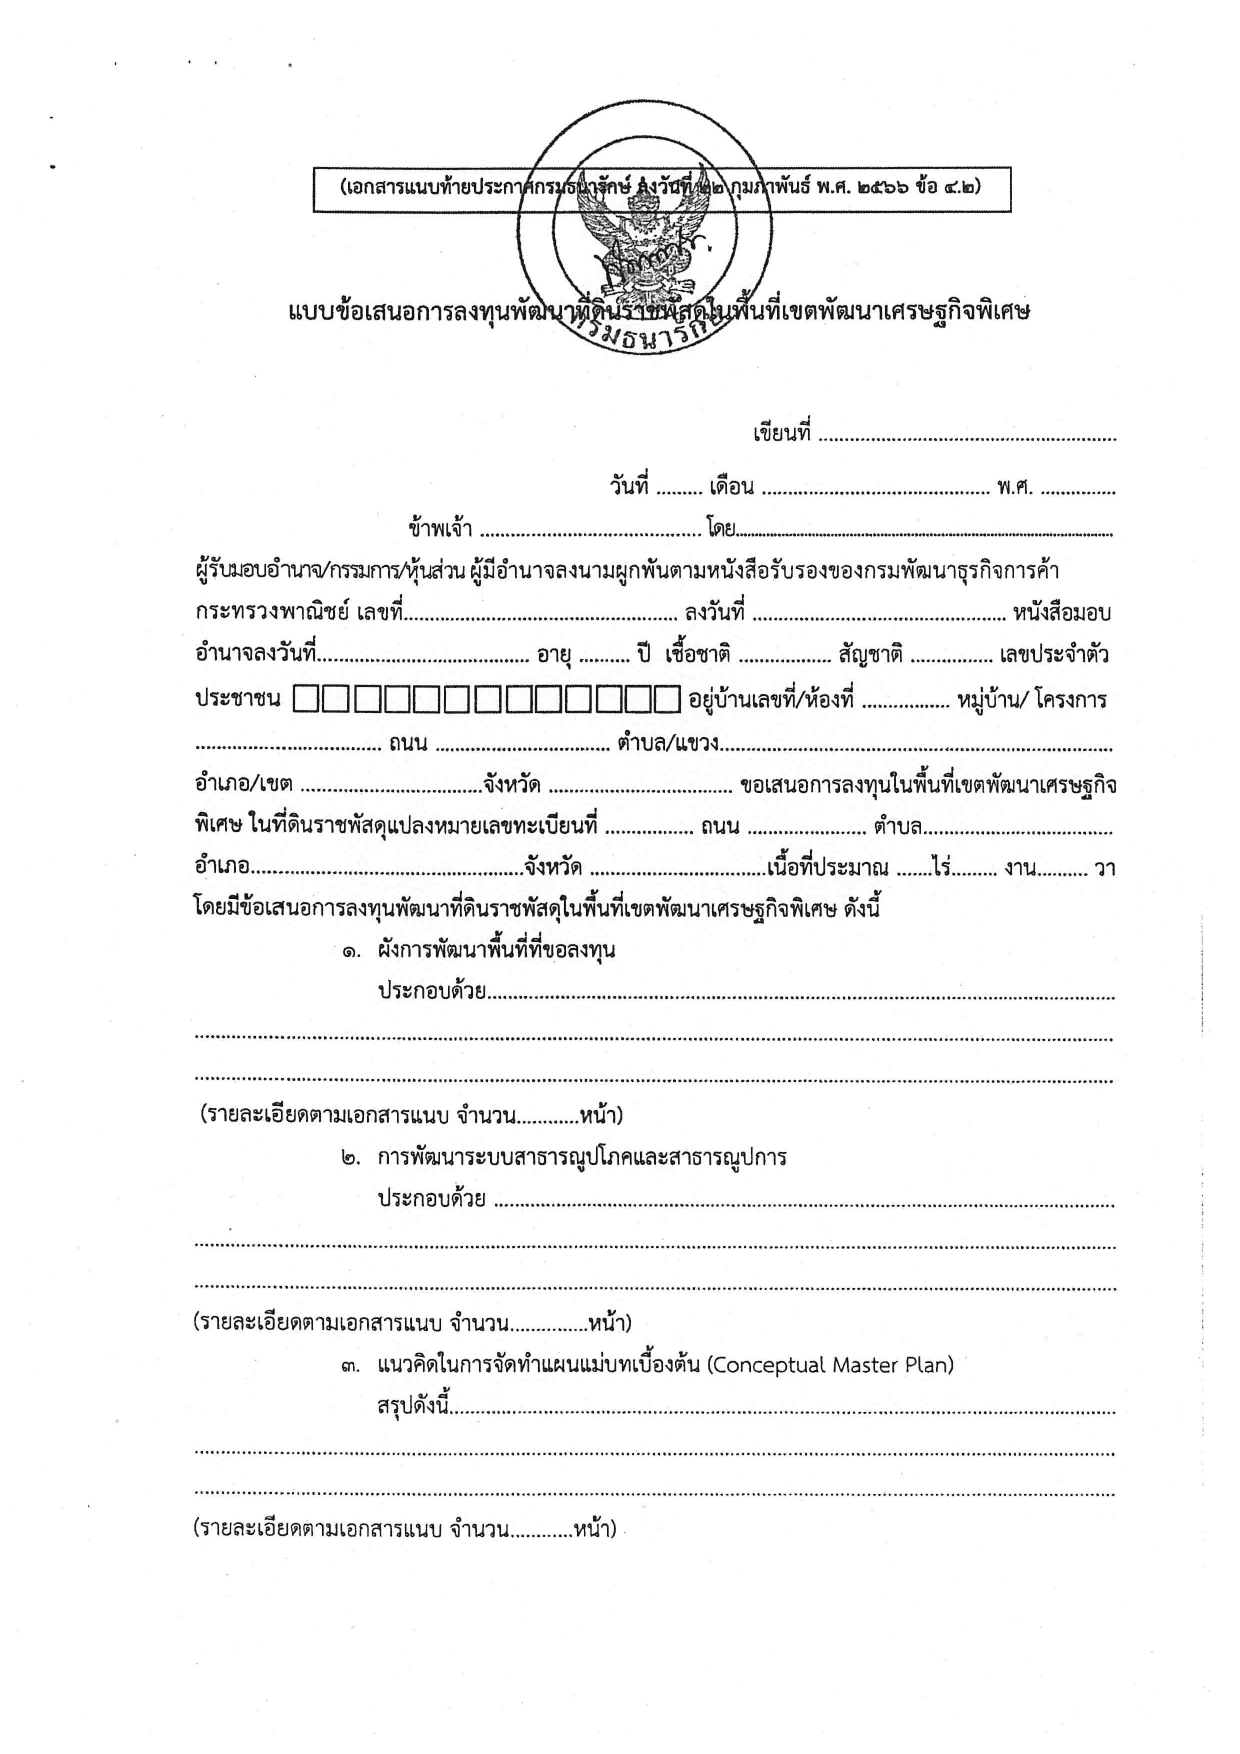 (เอกสารแนบท้ายประกาศกรมธนารักษ์ ลงวันที่ ๒๒ กุมภาพันธ์ พ.ศ. ๒๕๖๖ ข้อ ๔.๒)
แบบข้อเสนอการลงทุนพัฒนาที่ดินราชพัสดุในพื้นที่เขตพัฒนาเศรษฐกิจพิเศษ
กรมธนารักษ์
เขียนที่ ........................................................
วันที่ ......... เดือน ........................................... พ.ศ. ..............
ข้าพเจ้า .......................................... โดย........................................................................
ผู้รับมอบอำนาจ/กรรมการ/หุ้นส่วน ผู้มีอำนาจลงนามผูกพันตามหนังสือรับรองของกรมพัฒนาธุรกิจการค้า
กระทรวงพาณิชย์ เลขที่.................................................... ลงวันที่ ................................................ หนังสือมอบ
อำนาจลงวันที่........................................ อายุ .......... ปี เชื้อชาติ .................. สัญชาติ ................ เลขประจำตัว
ประชาชน □□□□□□□□□□□□□ อยู่บ้านเลขที่/ห้องที่ ................. หมู่บ้าน/ โครงการ
.................................... ถนน ................................. ตำบล/แขวง..........................................................................
อำเภอ/เขต ...................................จังหวัด ................................... ขอเสนอการลงทุนในพื้นที่เขตพัฒนาเศรษฐกิจ
พิเศษ ในที่ดินราชพัสดุแปลงหมายเลขทะเบียนที่ ................. ถนน ....................... ตำบล....................................
อำเภอ....................................................จังหวัด ..................................เนื้อที่ประมาณ .......ไร่......... งาน.......... วา
โดยมีข้อเสนอการลงทุนพัฒนาที่ดินราชพัสดุในพื้นที่เขตพัฒนาเศรษฐกิจพิเศษ ดังนี้
๑. ผังการพัฒนาพื้นที่ที่ขอลงทุน
ประกอบด้วย........................................................................................................................
................................................................................................................................................................
................................................................................................................................................................
(รายละเอียดตามเอกสารแนบ จำนวน............หน้า)
๒. การพัฒนาระบบสาธารณูปโภคและสาธารณูปการ
ประกอบด้วย ......................................................................................................................
................................................................................................................................................................
................................................................................................................................................................
(รายละเอียดตามเอกสารแนบ จำนวน...............หน้า)
๓. แนวคิดในการจัดทำแผนแม่บทเบื้องต้น (Conceptual Master Plan)
สรุปดังนี้..............................................................................................................................
................................................................................................................................................................
................................................................................................................................................................
(รายละเอียดตามเอกสารแนบ จำนวน............หน้า)